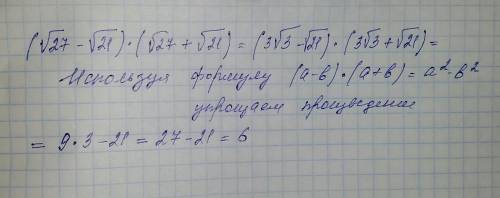 (√27 - √21)·(√27 + √21) = (3√3 - √21)·(3√3 + √21) =
Используя формулу (а-в)·(а+в) = а²-в²
упрощаем произведение
= 9·3 - 21 = 27 - 21 = 6